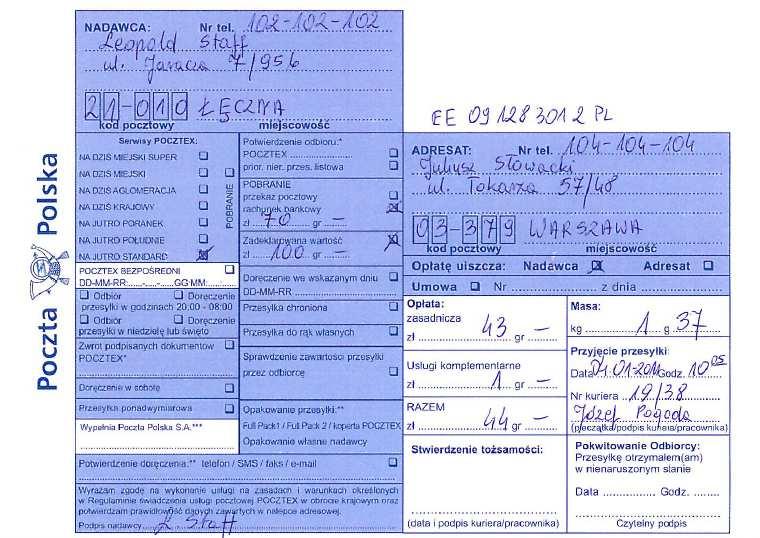 Poczta Polska
NADAWCA: Nr tel. 102-102-102
Leopold Staff
ul. Jaracza 7/956
21-010 ŁĘCZNA
kod pocztowy miejscowość
Serwisy POCZTEX:
NA DZIŚ MIEJSKI SUPER
NA DZIŚ MIEJSKI
NA DZIŚ AGLOMERACJA
NA DZIŚ KRAJOWY
NA JUTRO PORANEK
NA JUTRO POŁUDNIE
NA JUTRO STANDARD
POBRANIE
POCZTEX BEZPOŚREDNI
DD-MM-RR:......-.....-.....GG:MM:..........
Odbiór Doręczenie
przesyłki w godzinach 20:00 - 08:00
Odbiór Doręczenie
przesyłki w niedzielę lub święto
Zwrot podpisanych dokumentów
POCZTEX*
Doręczenie w sobotę
Przesyłka ponadwymiarowa
Wypełnia Poczta Polska S.A.***
Potwierdzenie odbioru:*
POCZTEX ......................
prior. nier. przes. listowa
POBRANIE
przekaz pocztowy
rachunek bankowy
zł 70 gr –
Zadeklarowana wartość
zł 100 gr –
Doręczenie we wskazanym dniu
DD-MM-RR ..............................
Przesyłka chroniona
Przesyłka do rąk własnych
Sprawdzenie zawartości przesyłki
przez odbiorcę
Opakowanie przesyłki:**
Full Pack1 / Full Pack 2 / koperta POCZTEX
Opakowanie własne nadawcy
Potwierdzenie doręczenia:** telefon / SMS / faks / e-mail
Wyrażam zgodę na wykonanie usługi na zasadach i warunkach określonych
w Regulaminie świadczenia usługi pocztowej POCZTEX w obrocie krajowym oraz
potwierdzam prawidłowość danych zawartych w nalepce adresowej.
Podpis nadawcy L. Staff
EE 09 128 301 2 PL
ADRESAT: Nr tel. 104-104-104
Juliusz Słowacki
ul. Tokarza 57/48
03-379 WARSZAWA
kod pocztowy miejscowość
Opłatę uiszcza: Nadawca Adresat
Umowa Nr ........................ z dnia .....................
Opłata:
zasadnicza
zł 43 gr –
Usługi komplementarne
zł 1 gr –
RAZEM
zł 44 gr –
Stwierdzenie tożsamości:
(data i podpis kuriera/pracownika)
Masa:
kg 1 g 37
Przyjęcie przesyłki:
Data 04.01.2011 Godz. 10 05
Nr kuriera 19/38
Józef Pogoda
(pieczątka/podpis kuriera/pracownika)
Pokwitowanie Odbiorcy:
Przesyłkę otrzymałem(am)
w nienaruszonym stanie
Data ............. Godz. ........
Czytelny podpis